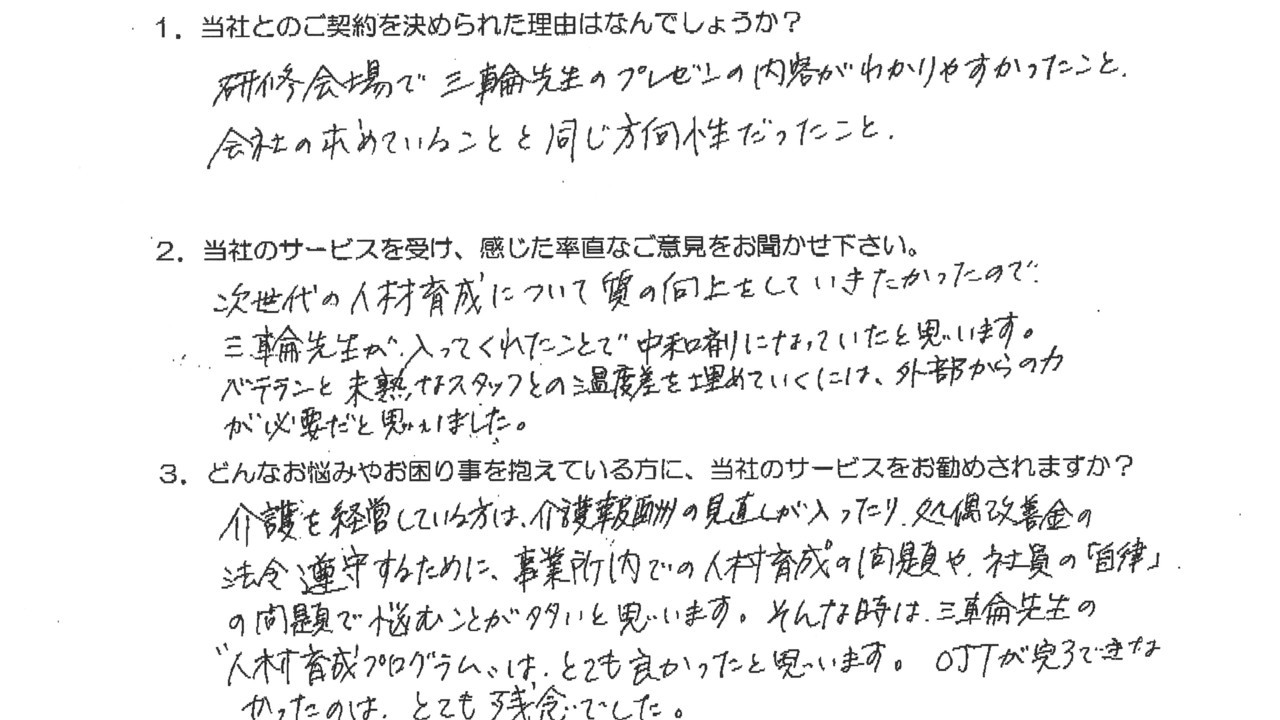 1．当社とのご契約を決められた理由はなんでしょうか？
研修会場で三輪先生のプレゼンの内容がわかりやすかったこと.
会社の求めていることと同じ方向性だったこと.
2．当社のサービスを受け、感じた率直なご意見をお聞かせ下さい。
次世代の人材育成について質の向上をしていきたかったので
三輪先生が、入ってくれたことで中和剤になっていたと思います。
ベテランと未熟なスタッフとの温度差を埋めていくには、外部からの力
が必要だと思いました。
3．どんなお悩みやお困り事を抱えている方に、当社のサービスをお勧めされますか？
介護を経営している方は、介護報酬の見直しが入ったり、処偶改善金の
法令遵守するために、事業所内での人材育成の問題や、社員の「自律」
の問題で悩むことが多いと思います。そんな時は、三輪先生の
"人材育成プログラム"は、とても良かったと思います。OJTが完了できな
かったのは、とても残念でした。